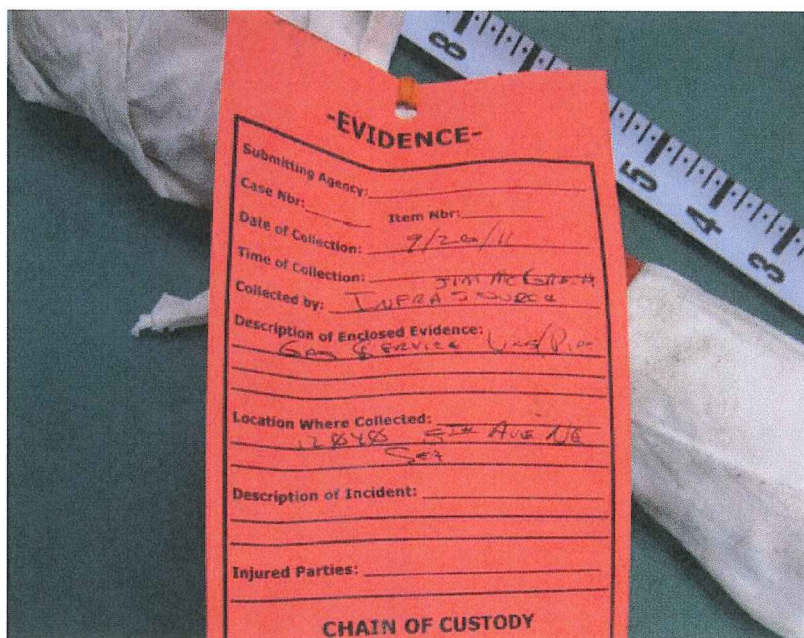 8
5
4
3
-EVIDENCE-
Submitting Agency:
Case Nbr: Item Nbr:
Date of Collection: 9/26/11
Time of Collection:
JIM MCGRATH
Collected by: INFRASOURCE
Description of Enclosed Evidence:
GAS SERVICE LINE/PIPE
Location Where Collected:
5TH AVE NE
Description of Incident:
Injured Parties:
CHAIN OF CUSTODY